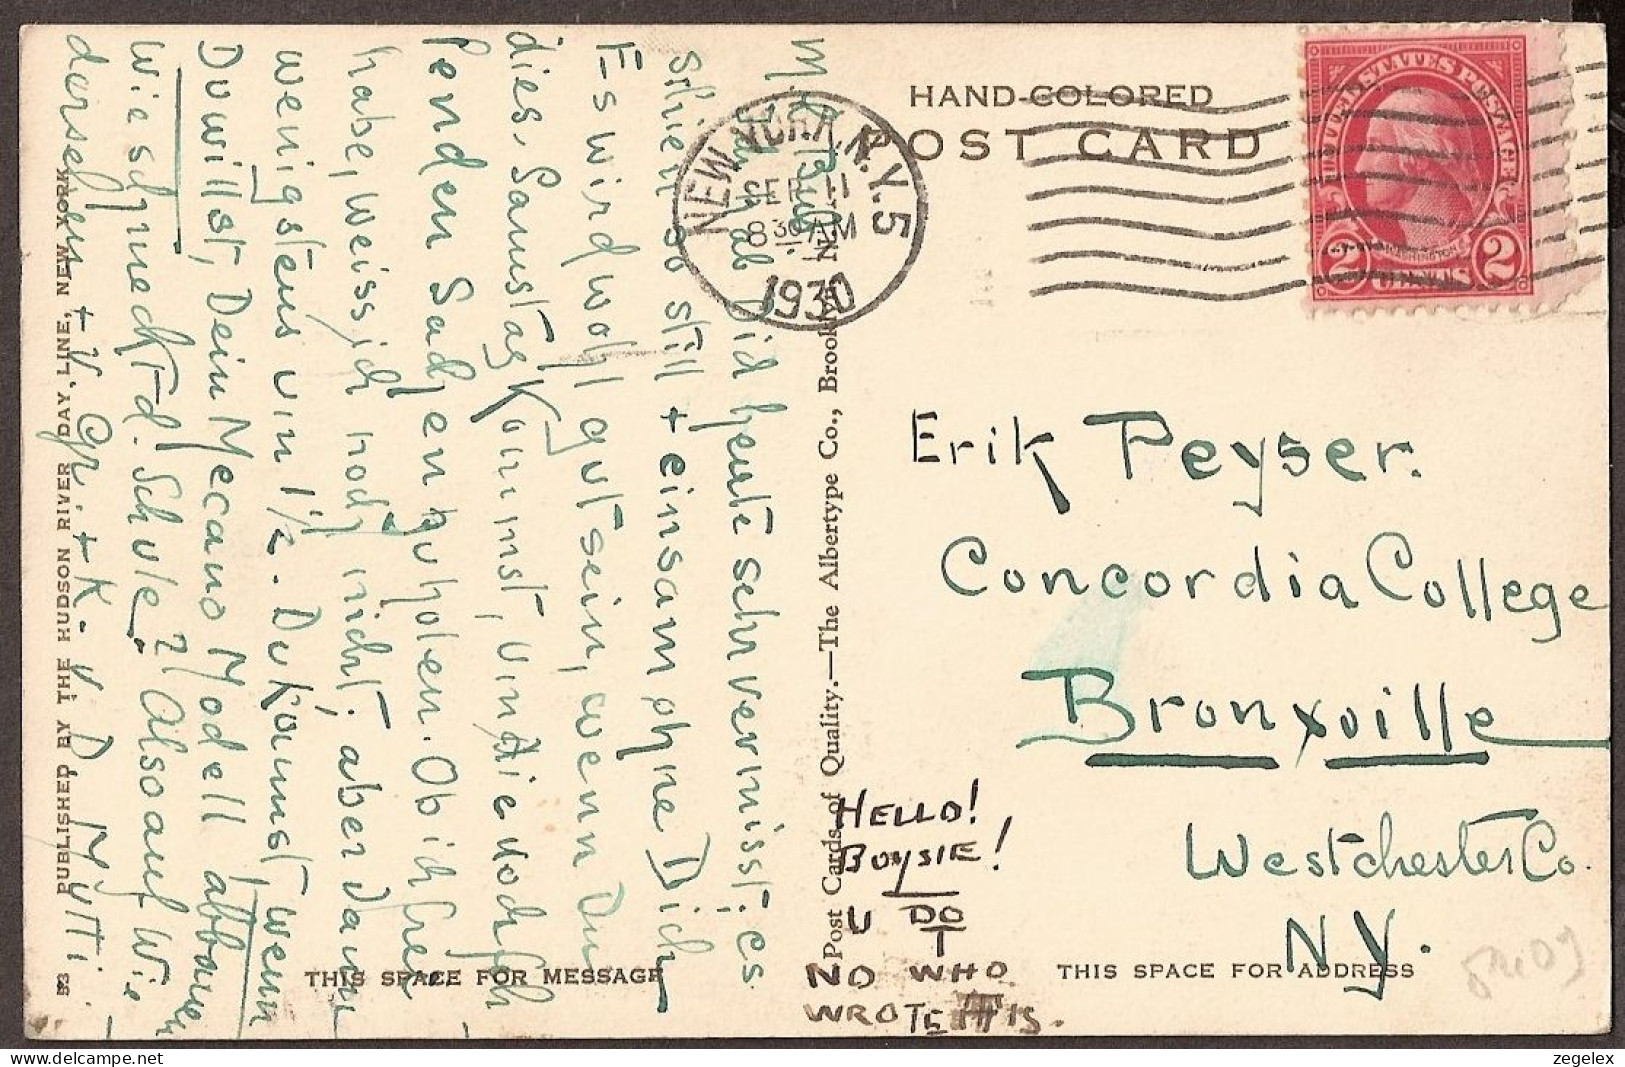 HAND-COLORED
POST CARD
NEW YORK, N.Y. 5
SEP 11
8 30 AM
1930
UNITED STATES POSTAGE
WASHINGTON
2 CENTS 2
M. l. Bub.
hab Dich heute sehr vermisst; es
schien so still + einsam ohne Dich
Es wird wohl gut sein, wenn Du
dies. Samstag kommst, um Die noch
Sachen zu holen. Ob ich frei
habe, weiss ich noch nicht; aber dann
wenigstens um 1½. Du kannst, wenn
Du willst, Dein Mecano Modell abbauen
Wie schmeckt d. Schule? Also auf Wie-
dersehen + v. Gr. + K. v D Mutti.
PUBLISHED BY THE HUDSON RIVER DAY LINE, NEW YORK.
THIS SPACE FOR MESSAGE
Post Cards of Quality.—The Albertype Co., Brooklyn, N.Y.
Erik Peyser.
Concordia College
Bronxville
Westchester Co.
N.Y.
HELLO!
BOYSIE!
U DO
NO WHO
WROTE THIS.
THIS SPACE FOR ADDRESS
zegelex